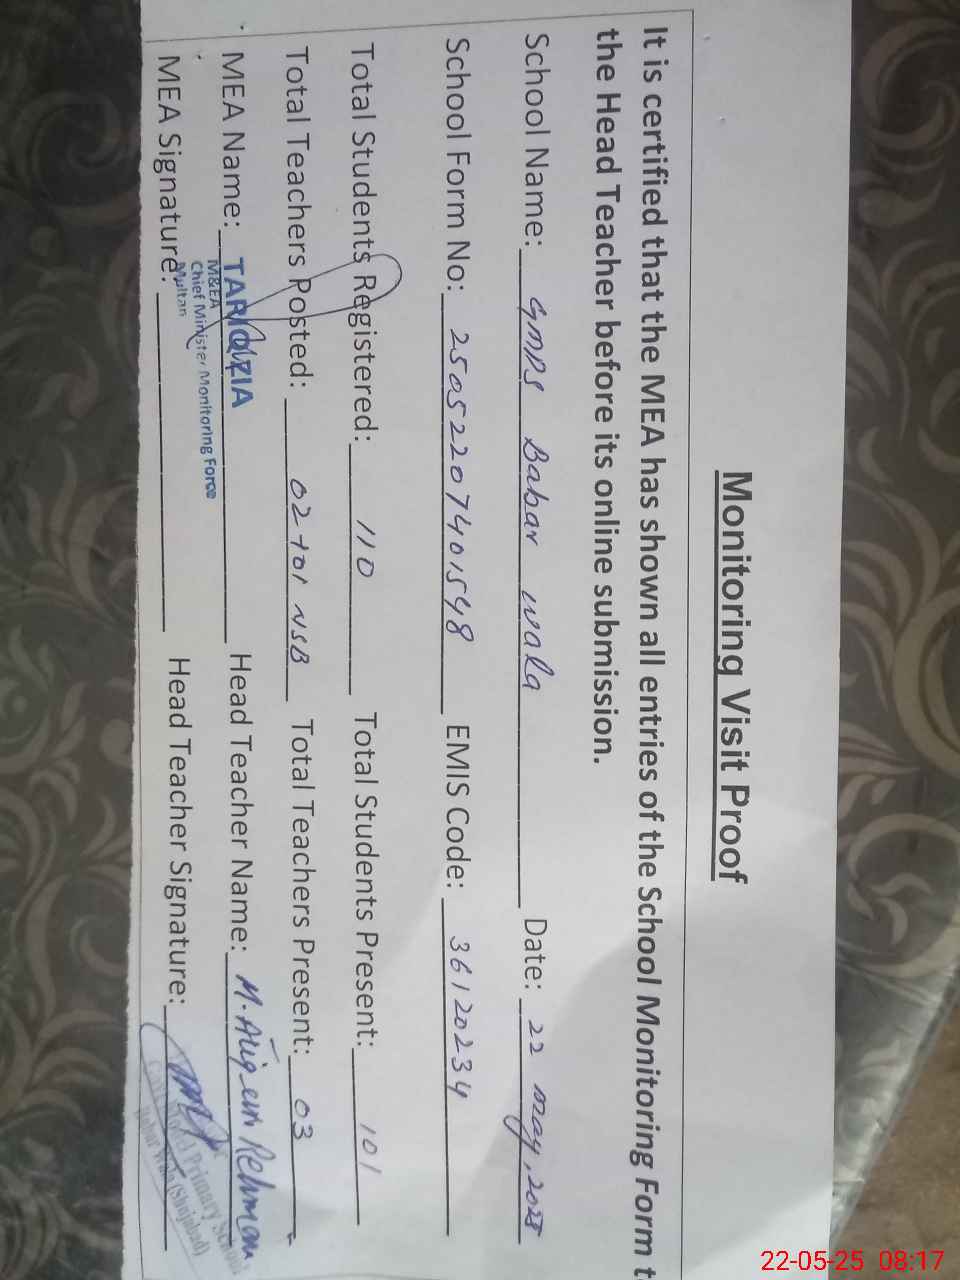 Monitoring Visit Proof
It is certified that the MEA has shown all entries of the School Monitoring Form t
the Head Teacher before its online submission.
School Name: GMPS Babar wala Date: 22 May, 2025
School Form No: 25052207401548 EMIS Code: 36120234
Total Students Registered: 110 Total Students Present: 101
Total Teachers Posted: 02+01 NSB Total Teachers Present: 03
MEA Name: TARIQ ZIA Head Teacher Name: M. Rehman
M&EA
Chief Minister Monitoring Force
Multan
MEA Signature: Head Teacher Signature:
Primary School
Babar Wala (Shujabad)
22-05-25 08:17